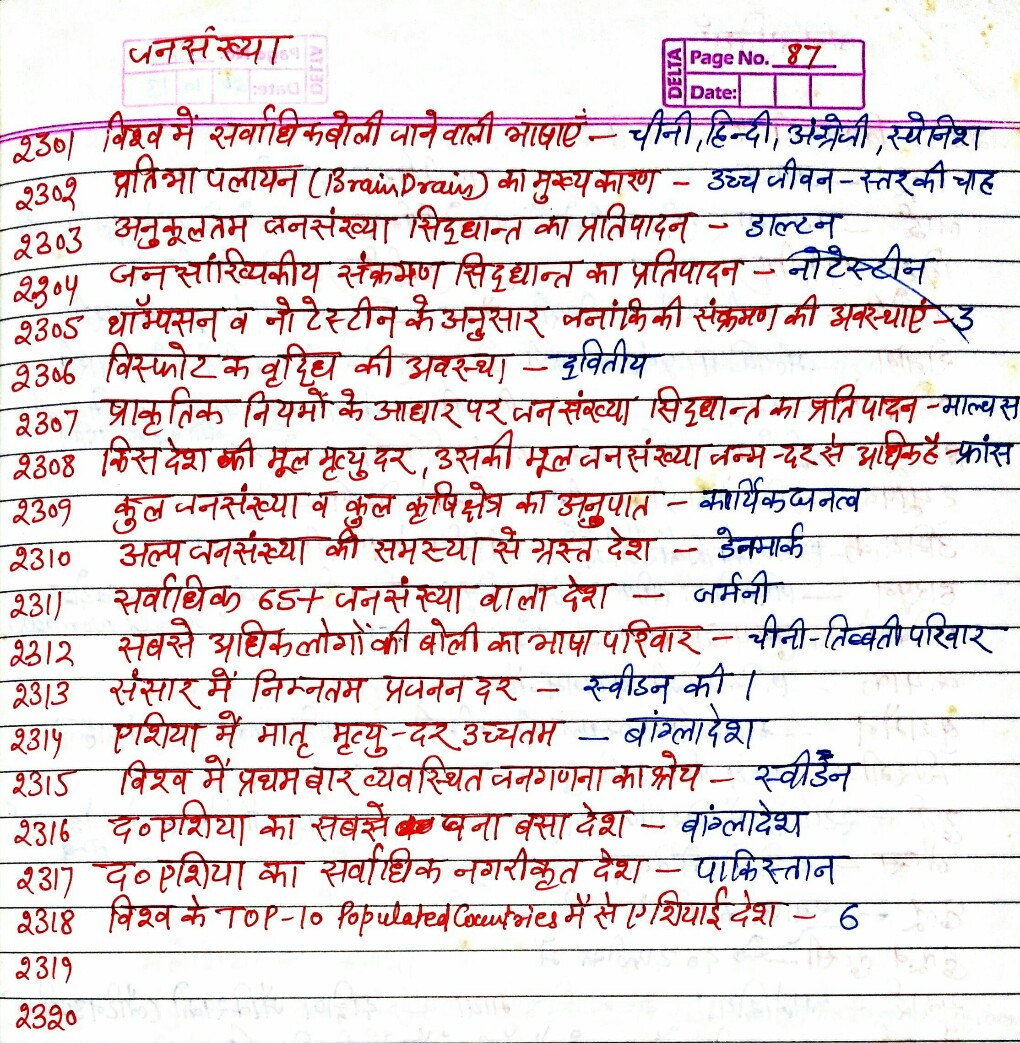 जनसंख्या
DELTA Page No. 87
Date:
2301 विश्व में सर्वाधिक बोली जाने वाली भाषाएँ – चीनी, हिन्दी, अंग्रेजी, स्पेनिश
2302 प्रतिभा पलायन (Brain Drain) का मुख्य कारण – उच्च जीवन-स्तर की चाह
2303 अनुकूलतम जनसंख्या सिद्धान्त का प्रतिपादन – डाल्टन
2304 जनसांख्यिकीय संक्रमण सिद्धान्त का प्रतिपादन – नोटेस्टीन
2305 थॉम्पसन व नोटेस्टीन के अनुसार जनांकिकी संक्रमण की अवस्थाएं – 3
2306 विस्फोटक वृद्धि की अवस्था – द्वितीय
2307 प्राकृतिक नियमों के आधार पर जनसंख्या सिद्धान्त का प्रतिपादन – माल्थस
2308 किस देश की मूल मृत्यु दर, उसकी मूल जनसंख्या जन्म-दर से अधिक है – फ्रांस
2309 कुल जनसंख्या व कुल कृषि क्षेत्र का अनुपात – कार्यिक घनत्व
2310 अल्प जनसंख्या की समस्या से ग्रस्त देश – डेनमार्क
2311 सर्वाधिक 65+ जनसंख्या वाला देश – जर्मनी
2312 सबसे अधिक लोगों की बोली का भाषा परिवार – चीनी-तिब्बती परिवार
2313 संसार में निम्नतम प्रजनन दर – स्वीडन की।
2314 एशिया में मातृ मृत्यु-दर उच्चतम – बांग्लादेश
2315 विश्व में प्रथम बार व्यवस्थित जनगणना का श्रेय – स्वीडन
2316 द॰ एशिया का सबसे घना बसा देश – बांग्लादेश
2317 द॰ एशिया का सर्वाधिक नगरीकृत देश – पाकिस्तान
2318 विश्व के TOP-10 Populated Countries में से एशियाई देश – 6
2319
2320